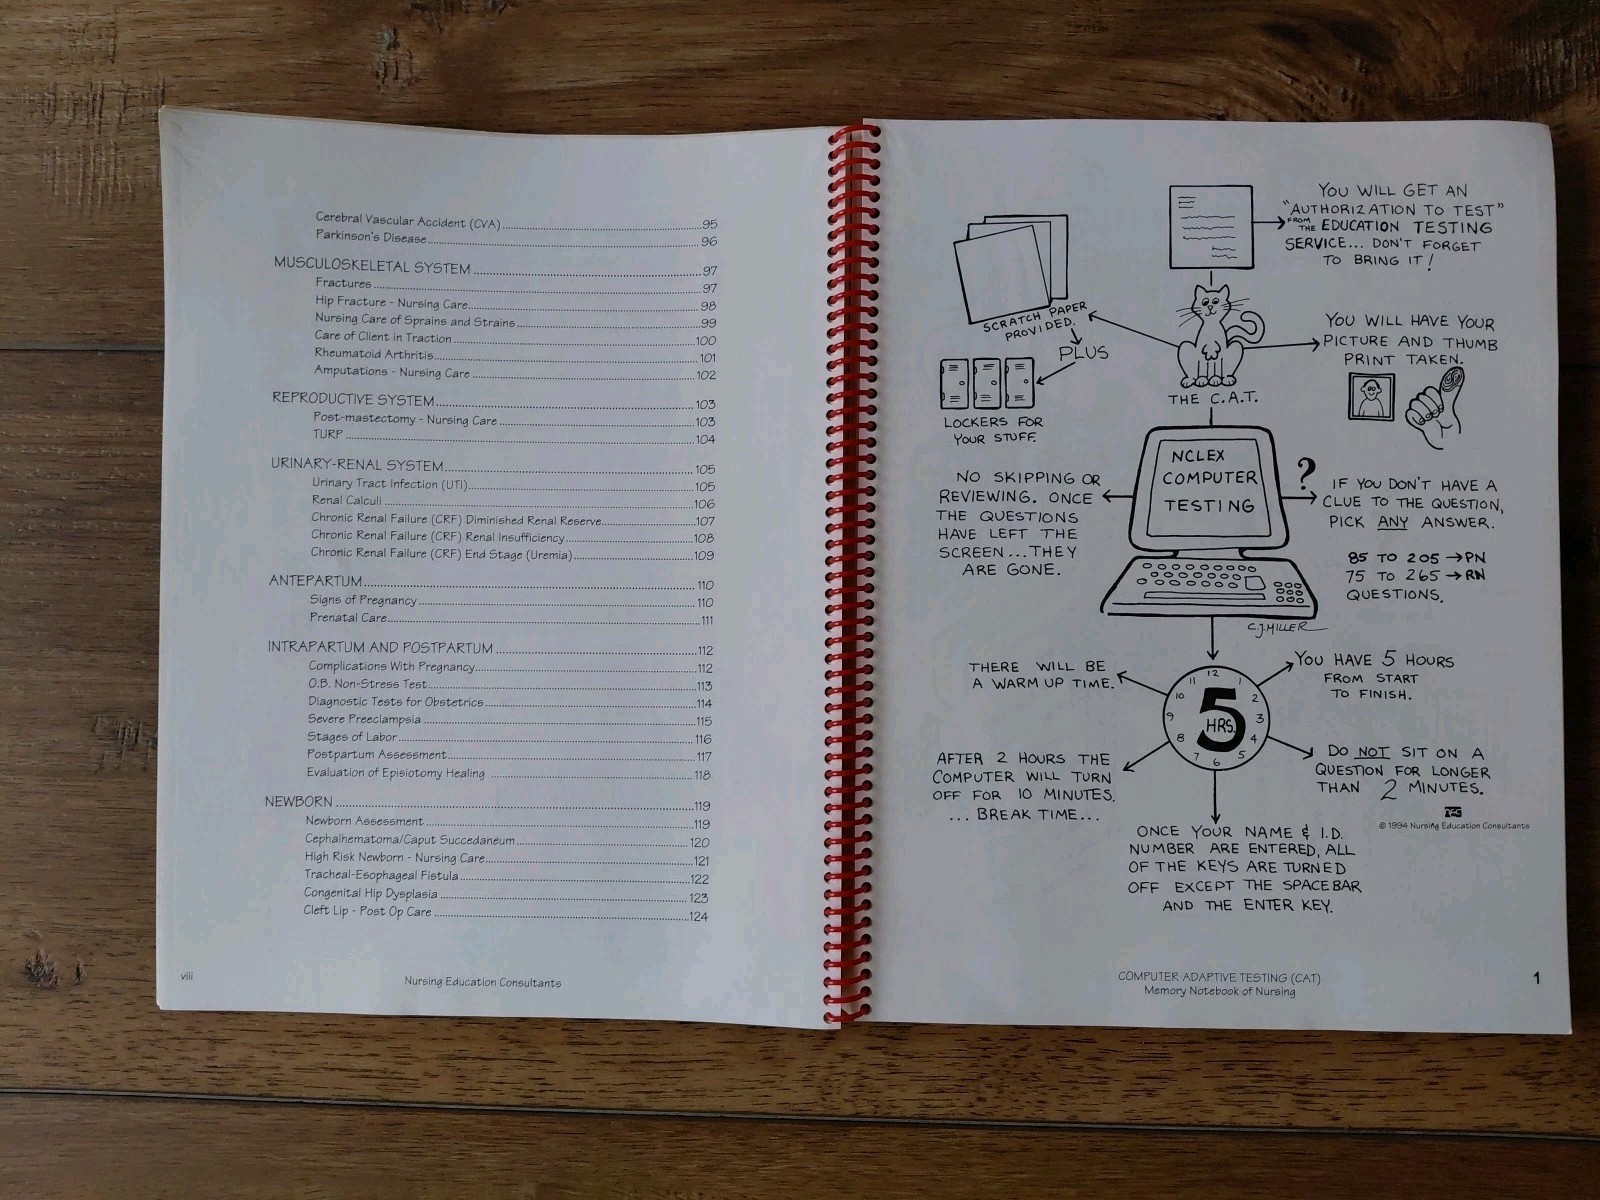 Cerebral Vascular Accident (CVA) 95
Parkinson's Disease 96
MUSCULOSKELETAL SYSTEM 97
Fractures 97
Hip Fracture - Nursing Care 98
Nursing Care of Sprains and Strains 99
Care of Client in Traction 100
Rheumatoid Arthritis 101
Amputations - Nursing Care 102
REPRODUCTIVE SYSTEM 103
Post-mastectomy - Nursing Care 103
TURP 104
URINARY-RENAL SYSTEM 105
Urinary Tract Infection (UTI) 105
Renal Calculi 106
Chronic Renal Failure (CRF) Diminished Renal Reserve 107
Chronic Renal Failure (CRF) Renal Insufficiency 108
Chronic Renal Failure (CRF) End Stage (Uremia) 109
ANTEPARTUM 110
Signs of Pregnancy 110
Prenatal Care 111
INTRAPARTUM AND POSTPARTUM 112
Complications With Pregnancy 112
O.B. Non-Stress Test 113
Diagnostic Tests for Obstetrics 114
Severe Preeclampsia 115
Stages of Labor 116
Postpartum Assessment 117
Evaluation of Episiotomy Healing 118
NEWBORN 119
Newborn Assessment 119
Cephalhematoma/Caput Succedaneum 120
High Risk Newborn - Nursing Care 121
Tracheal-Esophageal Fistula 122
Congenital Hip Dysplasia 123
Cleft Lip - Post Op Care 124
viii
Nursing Education Consultants
YOU WILL GET AN
"AUTHORIZATION TO TEST"
FROM THE EDUCATION TESTING
SERVICE... DON'T FORGET
TO BRING IT!
SCRATCH PAPER
PROVIDED.
PLUS
LOCKERS FOR
YOUR STUFF.
THE C.A.T.
YOU WILL HAVE YOUR
PICTURE AND THUMB
PRINT TAKEN.
NCLEX
COMPUTER
TESTING
NO SKIPPING OR
REVIEWING. ONCE
THE QUESTIONS
HAVE LEFT THE
SCREEN... THEY
ARE GONE.
?
IF YOU DON'T HAVE A
CLUE TO THE QUESTION,
PICK ANY ANSWER.
85 TO 205 → PN
75 TO 265 → RN
QUESTIONS.
C.J. MILLER
THERE WILL BE
A WARM UP TIME.
YOU HAVE 5 HOURS
FROM START
TO FINISH.
12 1 2 3 4 5 6 7 8 9 10 11
5
HRS.
AFTER 2 HOURS THE
COMPUTER WILL TURN
OFF FOR 10 MINUTES.
... BREAK TIME...
DO NOT SIT ON A
QUESTION FOR LONGER
THAN 2 MINUTES.
NEC
© 1994 Nursing Education Consultants
ONCE YOUR NAME & I.D.
NUMBER ARE ENTERED, ALL
OF THE KEYS ARE TURNED
OFF EXCEPT THE SPACEBAR
AND THE ENTER KEY.
COMPUTER ADAPTIVE TESTING (CAT)
Memory Notebook of Nursing
1